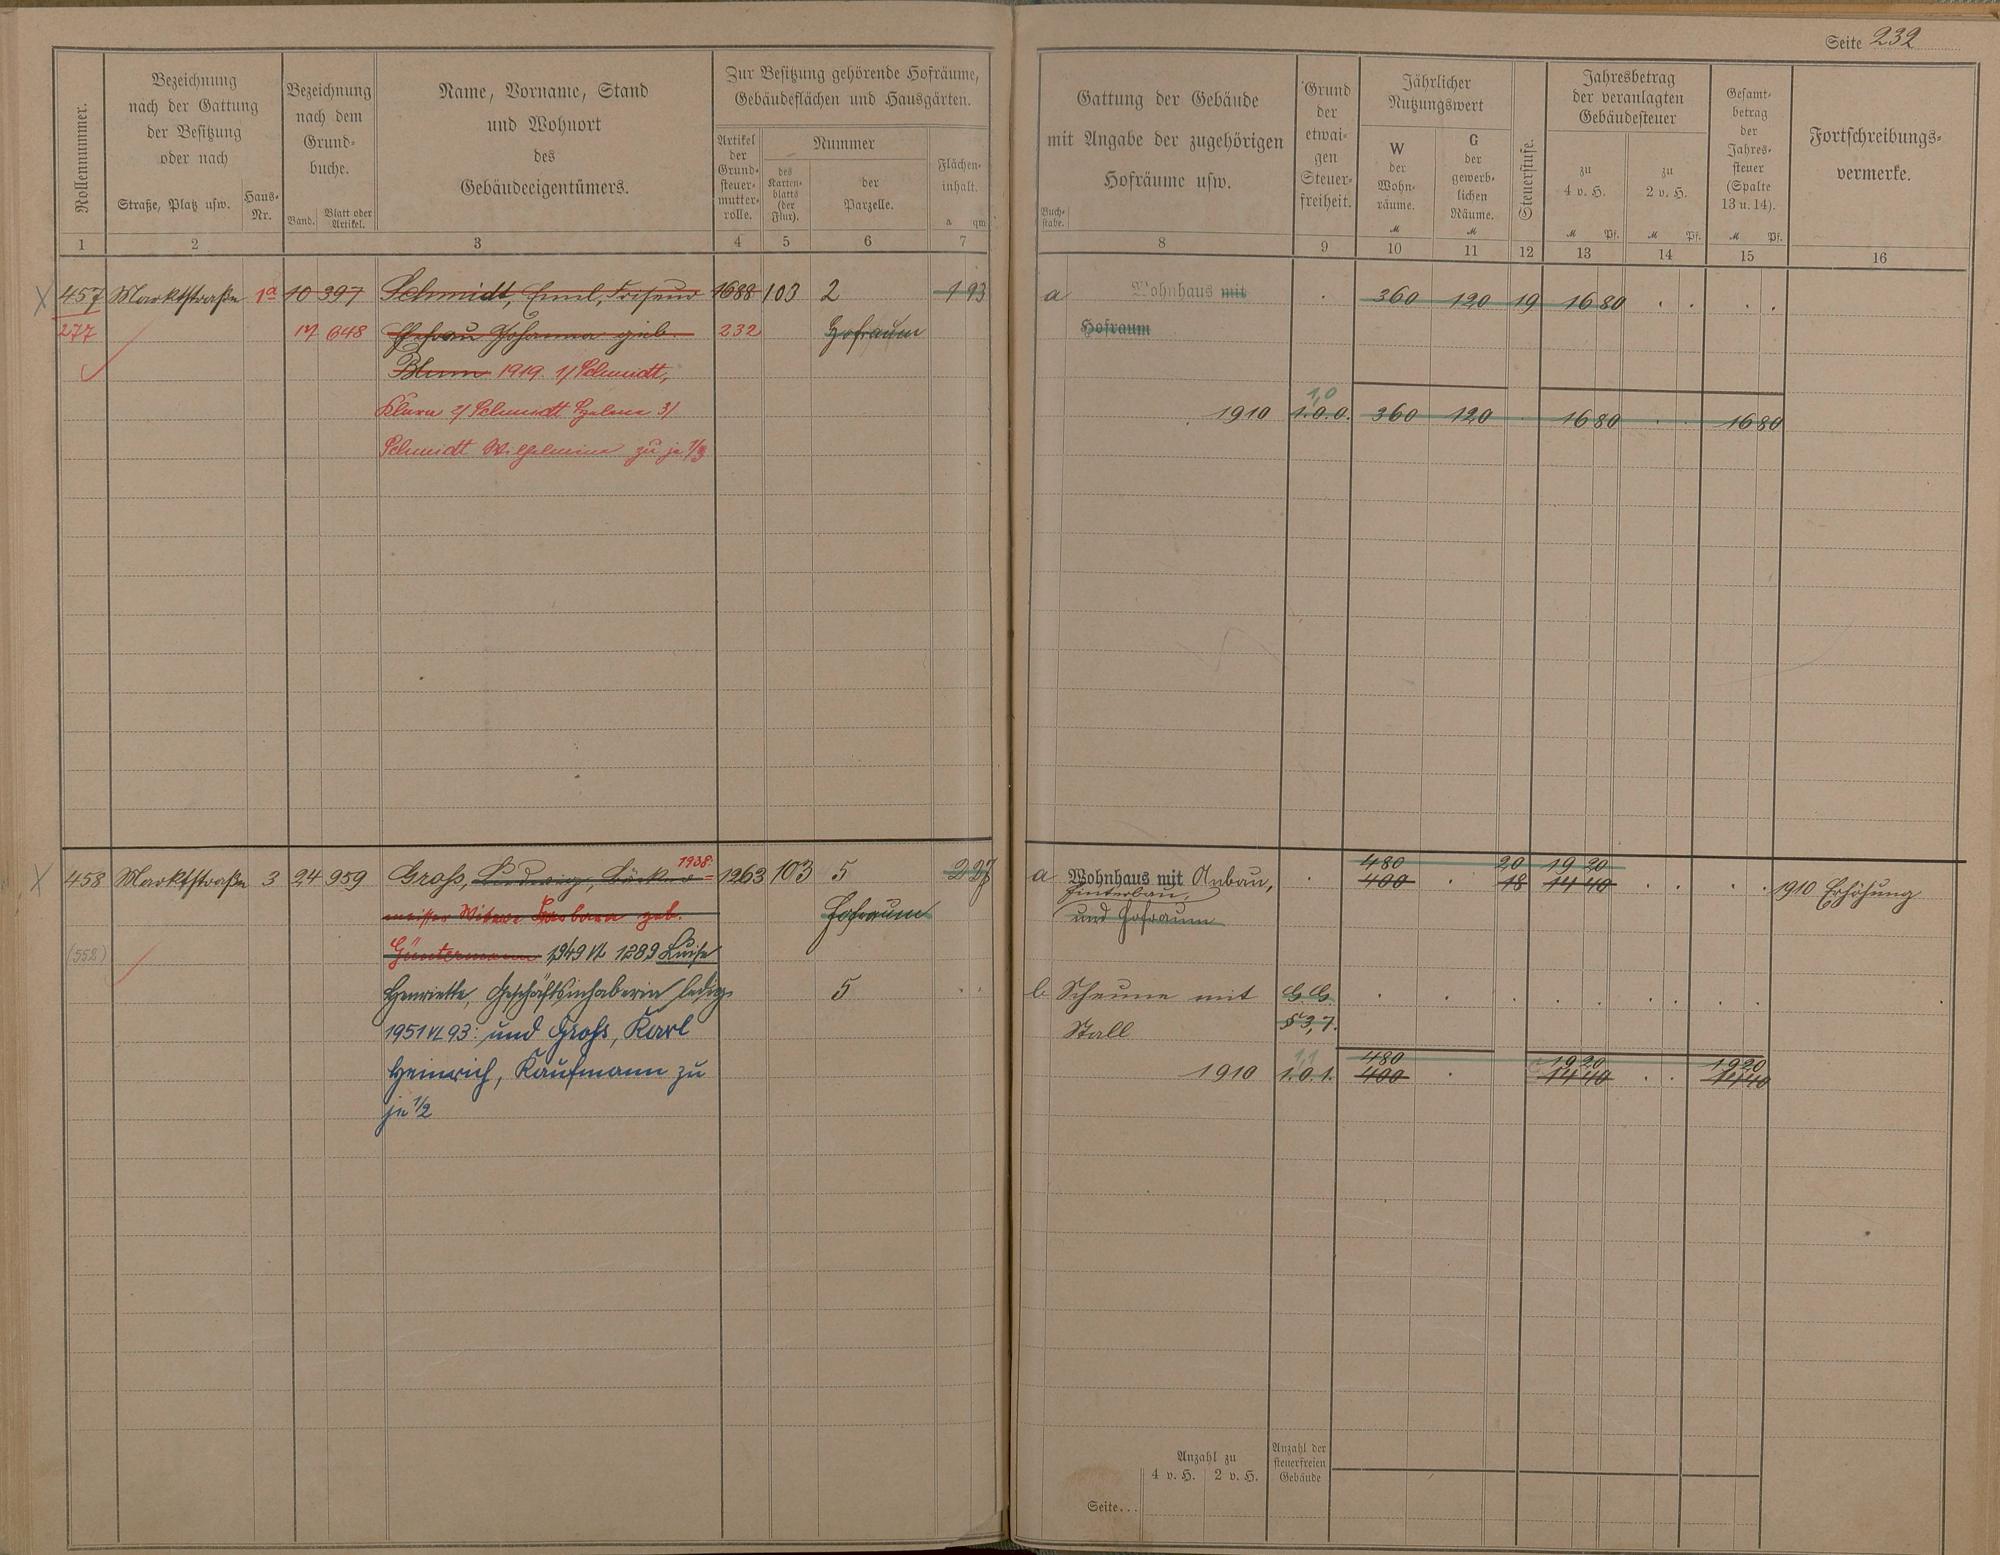 Seite 232
Rollennummer.
Bezeichnung
nach der Gattung
der Besitzung
oder nach
Straße, Platz usw.
Haus-
Nr.
Bezeichnung
nach dem
Grund-
buche.
Band.
Blatt oder
Artikel.
Name, Vorname, Stand
und Wohnort
des
Gebäudeeigentümers.
Zur Besitzung gehörende Hofräume,
Gebäudeflächen und Hausgärten.
Artikel
der
Grund-
steuer-
mutter-
rolle.
Nummer
des
Karten-
blatts
(der
Flur).
der
Parzelle.
Flächen-
inhalt.
a qm
Gattung der Gebäude
mit Angabe der zugehörigen
Hofräume usw.
Buch-
stabe.
Grund
der
etwai-
gen
Steuer-
freiheit.
Jährlicher
Nutzungswert
W
der
Wohn-
räume.
M
G
der
gewerb-
lichen
Räume.
M
Steuerstufe.
Jahresbetrag
der veranlagten
Gebäudesteuer
zu
4 v. H.
M Pf.
zu
2 v. H.
M Pf.
Gesamt-
betrag
der
Jahres-
steuer
(Spalte
13 u. 14).
M Pf.
Fortschreibungs-
vermerke.
1 2 3 4 5 6 7 8 9 10 11 12 13 14 15 16
457 Marktstraße 1a 10 397 Schmidt, Emil, Friseur 1688 103 2 1 93 a Wohnhaus mit 360 120 19 16 80
277 17 648 Ehefrau Johanna geb. 232 Hofraum Hofraum
Blum 1919. 1/ Schmidt,
Klara 2/ Schmidt Helene 3/ 1910 1.0.0. 1,0 360 120 16 80 16 80
Schmidt Wilhelmine zu je 1/3
458 Marktstraße 3 24 959 Groß, Ludwig, Bäcker= 1938: 1263 103 5 2 27 a Wohnhaus mit Anbau, 480 400 20 18 19 20 14 40 1910 Erhöhung
Hinterbau,
meister Witwe Barbara geb. Hofraum und Hofraum
(552) Güntermann 1949 VL 1289 Luise
Henriette, Geschäftsinhaberin ledig 5 b Scheune mit G.G.
1951 VL 93: und Groß, Karl Stall § 3,7.
Heinrich, Kaufmann zu 1910 1.0.1. 1,1 480 400 19 20 14 40 19 20 14 40
je 1/2
Anzahl zu
4 v. H. 2 v. H.
Anzahl der
steuerfreien
Gebäude
Seite...